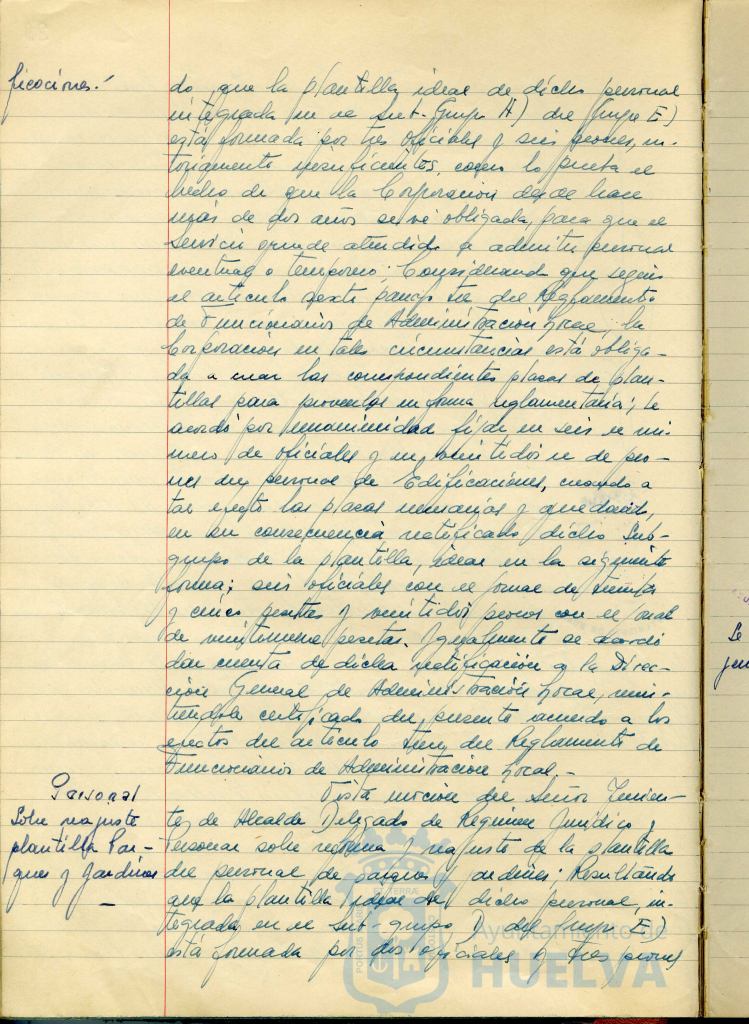 ficaciones.
do que la plantilla ideal de dicho personal
integrada en el Sub-Grupo A) del Grupo E)
está formada por tres oficiales y seis peones, no-
toriamente insuficientes, como lo prueba el
hecho de que la Corporación desde hace
más de dos años se ve obligada, para que el
servicio quede atendido a admitir personal
eventual o temporero; Considerando que según
el artículo sexto párrafo del Reglamento
de Funcionarios de Administración Local, la
Corporación en tales circunstancias está obliga-
da a crear las correspondientes plazas de plan-
tillas para proveerlas en forma reglamentaria; Se
acordó por unanimidad fijar en seis el nú-
mero de oficiales y en veintidos el de peo-
nes del personal de Edificaciones, creando a
tal efecto las plazas necesarias y quedando,
en su consecuencia rectificado dicho Sub-
grupo de la plantilla ideal en la siguiente
forma; seis oficiales con el jornal de treinta
y cinco pesetas y veintidos peones con el jornal
de veintinueve pesetas. Igualmente se acordó
dar cuenta de dicha rectificación a la Direc-
ción General de Administración Local, remi-
tiéndole certificado del presente acuerdo a los
efectos del artículo del Reglamento de
Funcionarios de Administración Local.-
Personal
Sobre reajuste
plantilla Par-
ques y Jardines
Vista moción del Señor Tenien-
te de Alcalde Delegado de Régimen Jurídico y
Personal sobre reforma y reajuste de la plantilla
del personal de parques y jardines: Resultando
que la plantilla ideal de dicho personal, in-
tegrada en el Sub-grupo del Grupo E)
está formada por dos oficiales y tres peones
Se
Ayuntamiento de
HUELVA